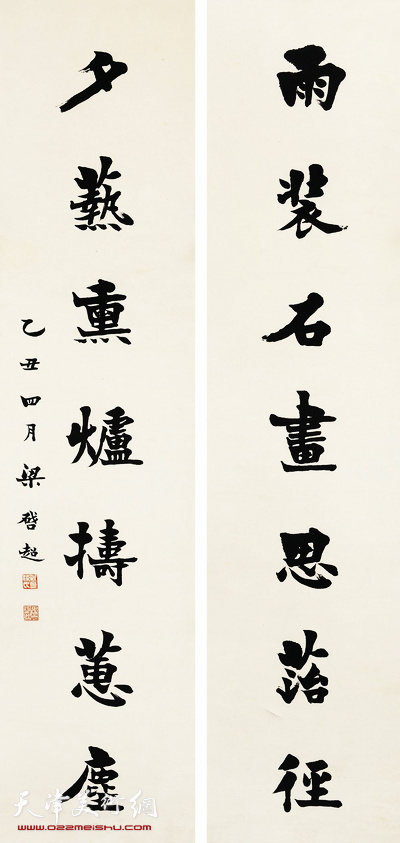 雨裝石畫思菭徑
夕爇熏爐擣蕙塵
乙丑四月梁啓超
天津美術網
www.022meishu.com